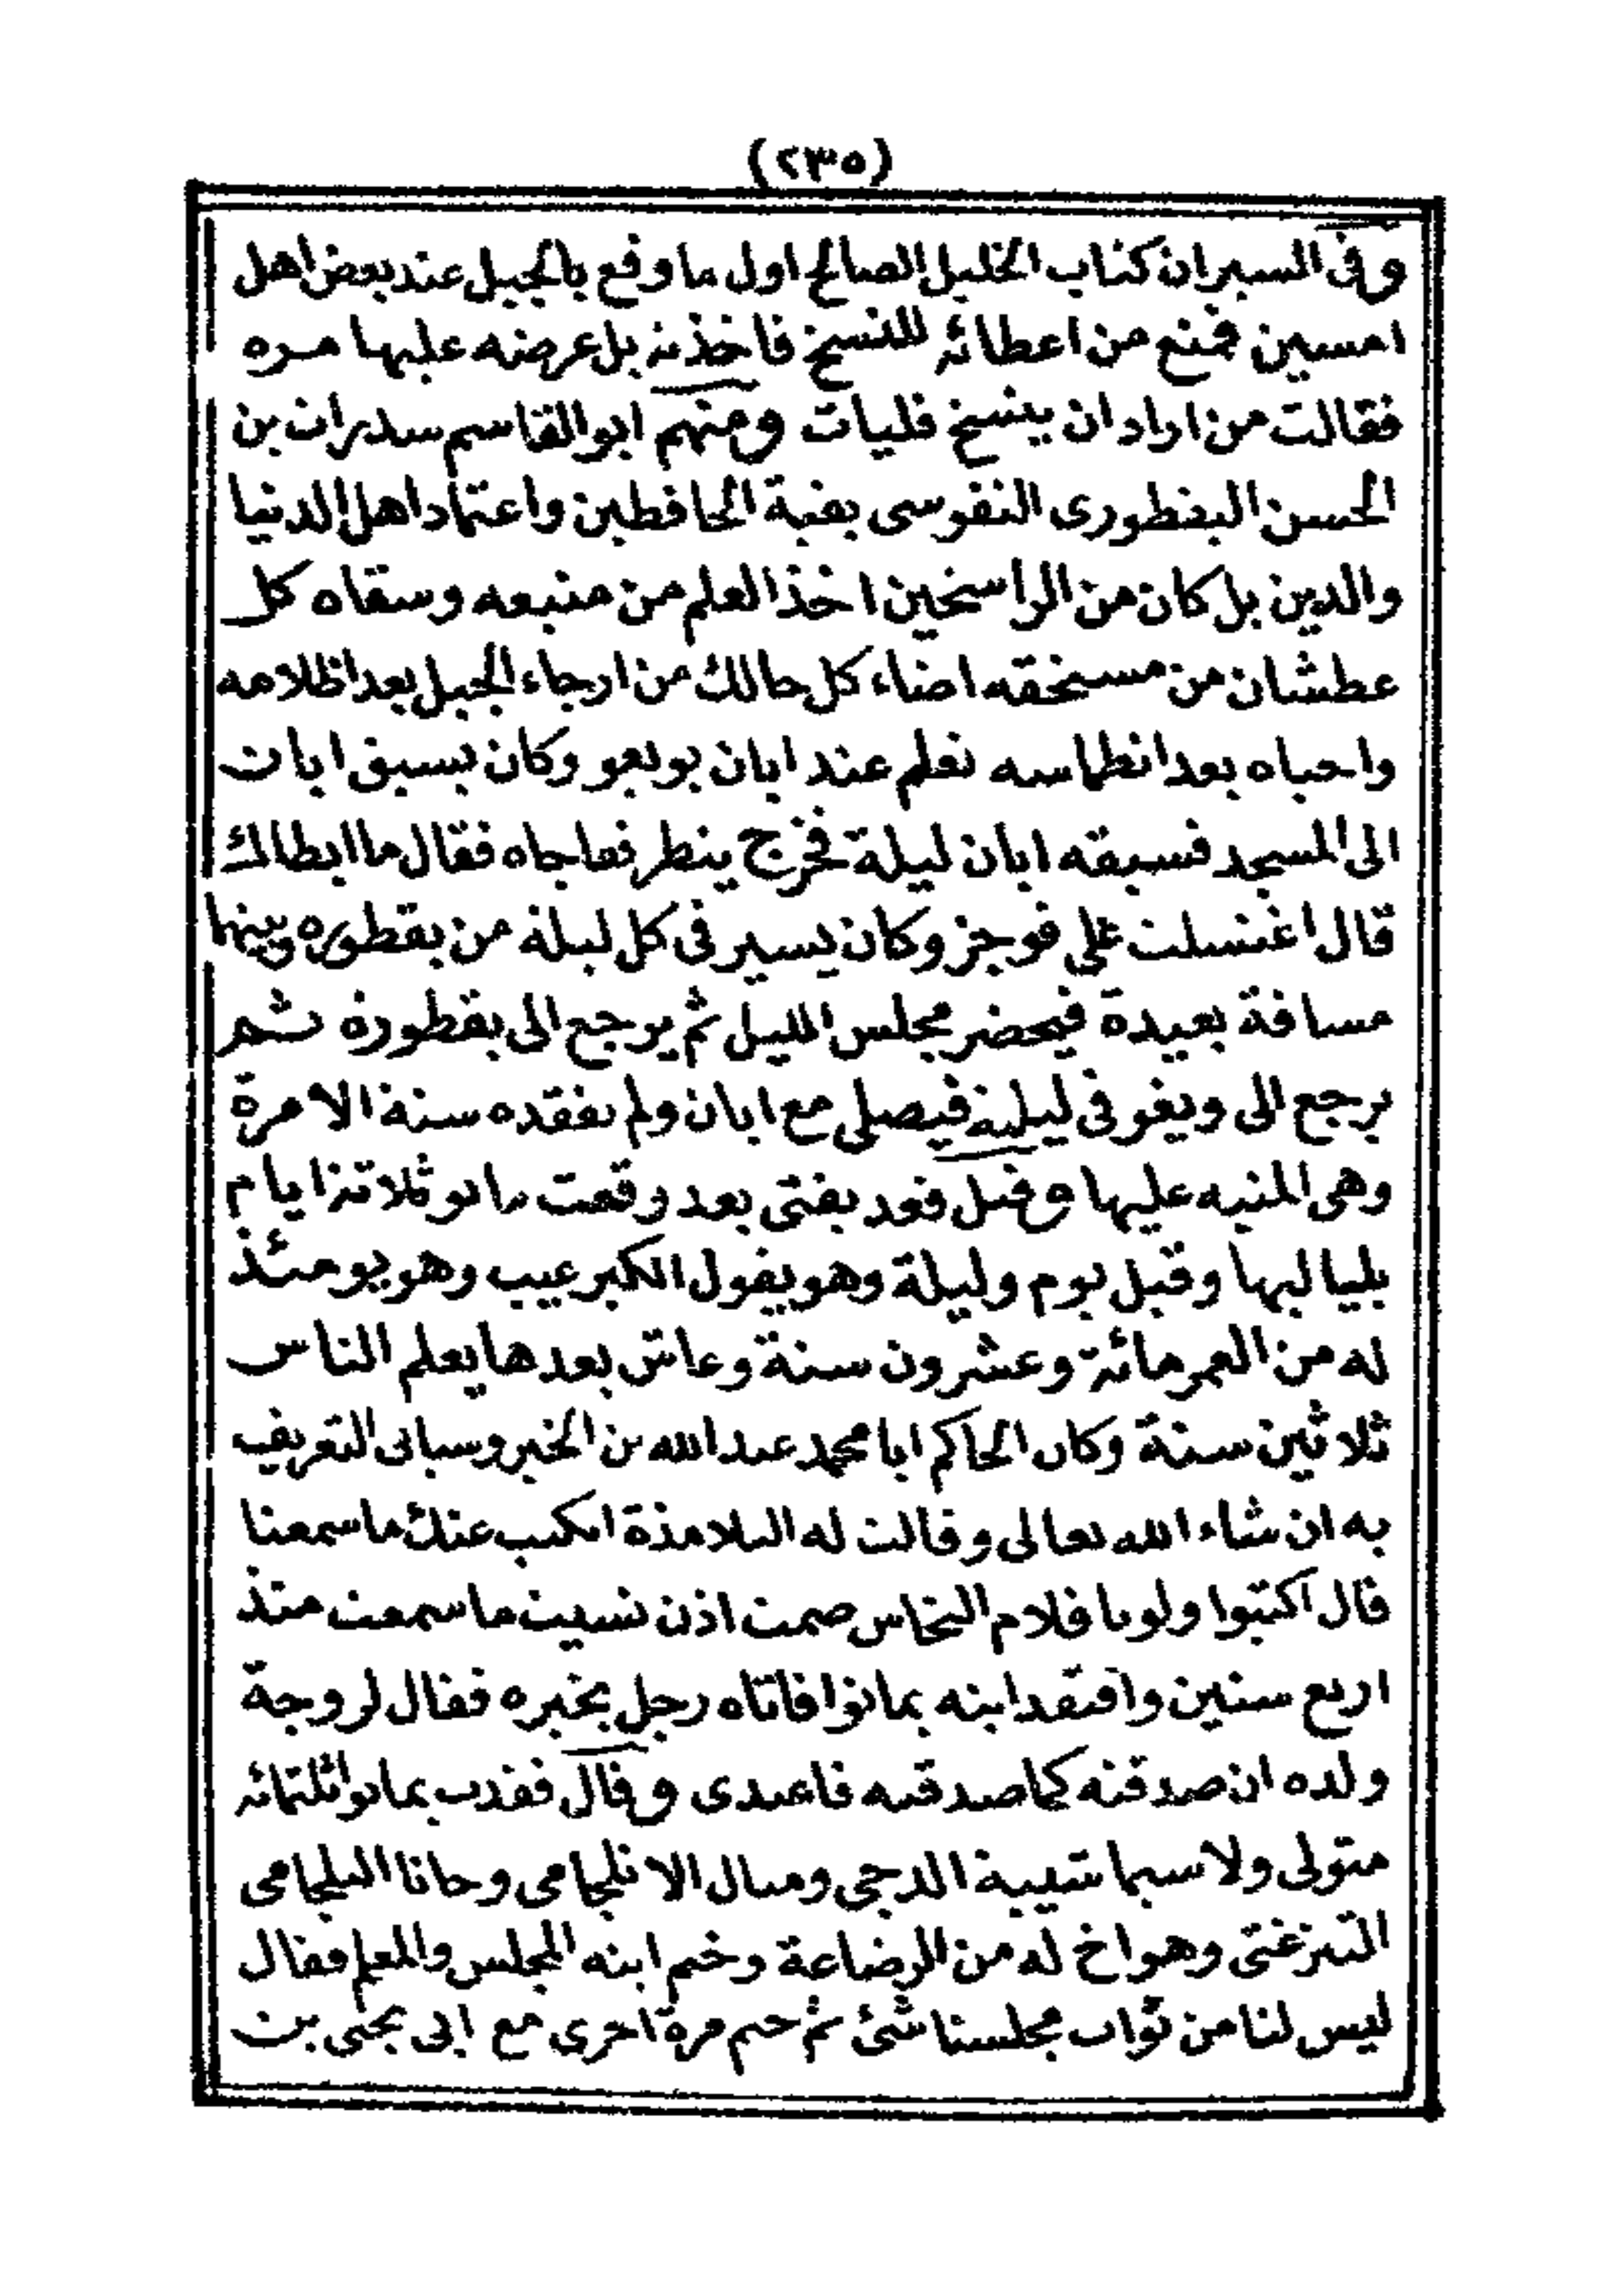 (٢٣٥)
وفى السيران كتاب الخليل الصالح اول ما وقع بالجبل عند بعض اهل
امسين فمنع من اعطائه للنسخ فاخذته بل عرضه عليها مره
فقالت من اراد ان ينسخ فليات ومنهم ابو القاسم سدرات بن
الحسن البغطورى النفوسى بقية الحافظين واعتماد اهل الدنيا
والدين بل كان من الراسخين اخذ العلم من منبعه وسقاه كل
عطشان من مستحقه اضاء كل حالك من ارجاء الجبل بعد اظلامه
واحياه بعد انطماسه تعلم عند ابان بويغو وكان يسبق ابان
الى المسجد فسبقه ابان ليلة فخرج ينظر ففاجاه فقال ما ابطا بك
قال اغتسلت على فوجز وكان يسير فى كل ليلة من بقطوره وبينهما
مسافة بعيدة فيحضر مجلس الليل ثم يرجع الى بقطورة ثم
يرجع الى ويغو فى ليلته فيصلى مع ابان ولم يفقده سنة الا مرة
وهى المنبه عليها وقيل قعد يفتى بعد وقعت مانو ثلاثة ايام
بليا ليها وقيل يوم وليلة وهو يقول الكبر عيب وهو يومئذ
له من العمر مائة وعشرون سنة وعاش بعدها يعلم الناس
ثلاثين سنة وكان الحاكم ابا محمد عبد الله بن الخير وسياتى التعريف
به ان شاء الله تعالى وقالت له التلامذة انكتب عنك ما سمعنا
قال اكتبوا ولو با قلام النحاس صمت اذن نسيت ما سمعت منذ
اربع سنين وافتقد ابنه بمانوا فاتاه رجل بخبره فقال لزوجة
ولده ان صدقته كما صدقته فاعتدى وقال فقدت بمانوا ثلثمائه
متولى ولا سيما شيبة الدجى ومال الانلجامى وحانا التلجامى
التيزغتى وهو اخ له من الرضاعة وختم ابنه المجلس والمعلم فقال
ليس لنا من ثواب مجلسنا شئ ثم ختم مرة اخرى مع ابى يحيى بن